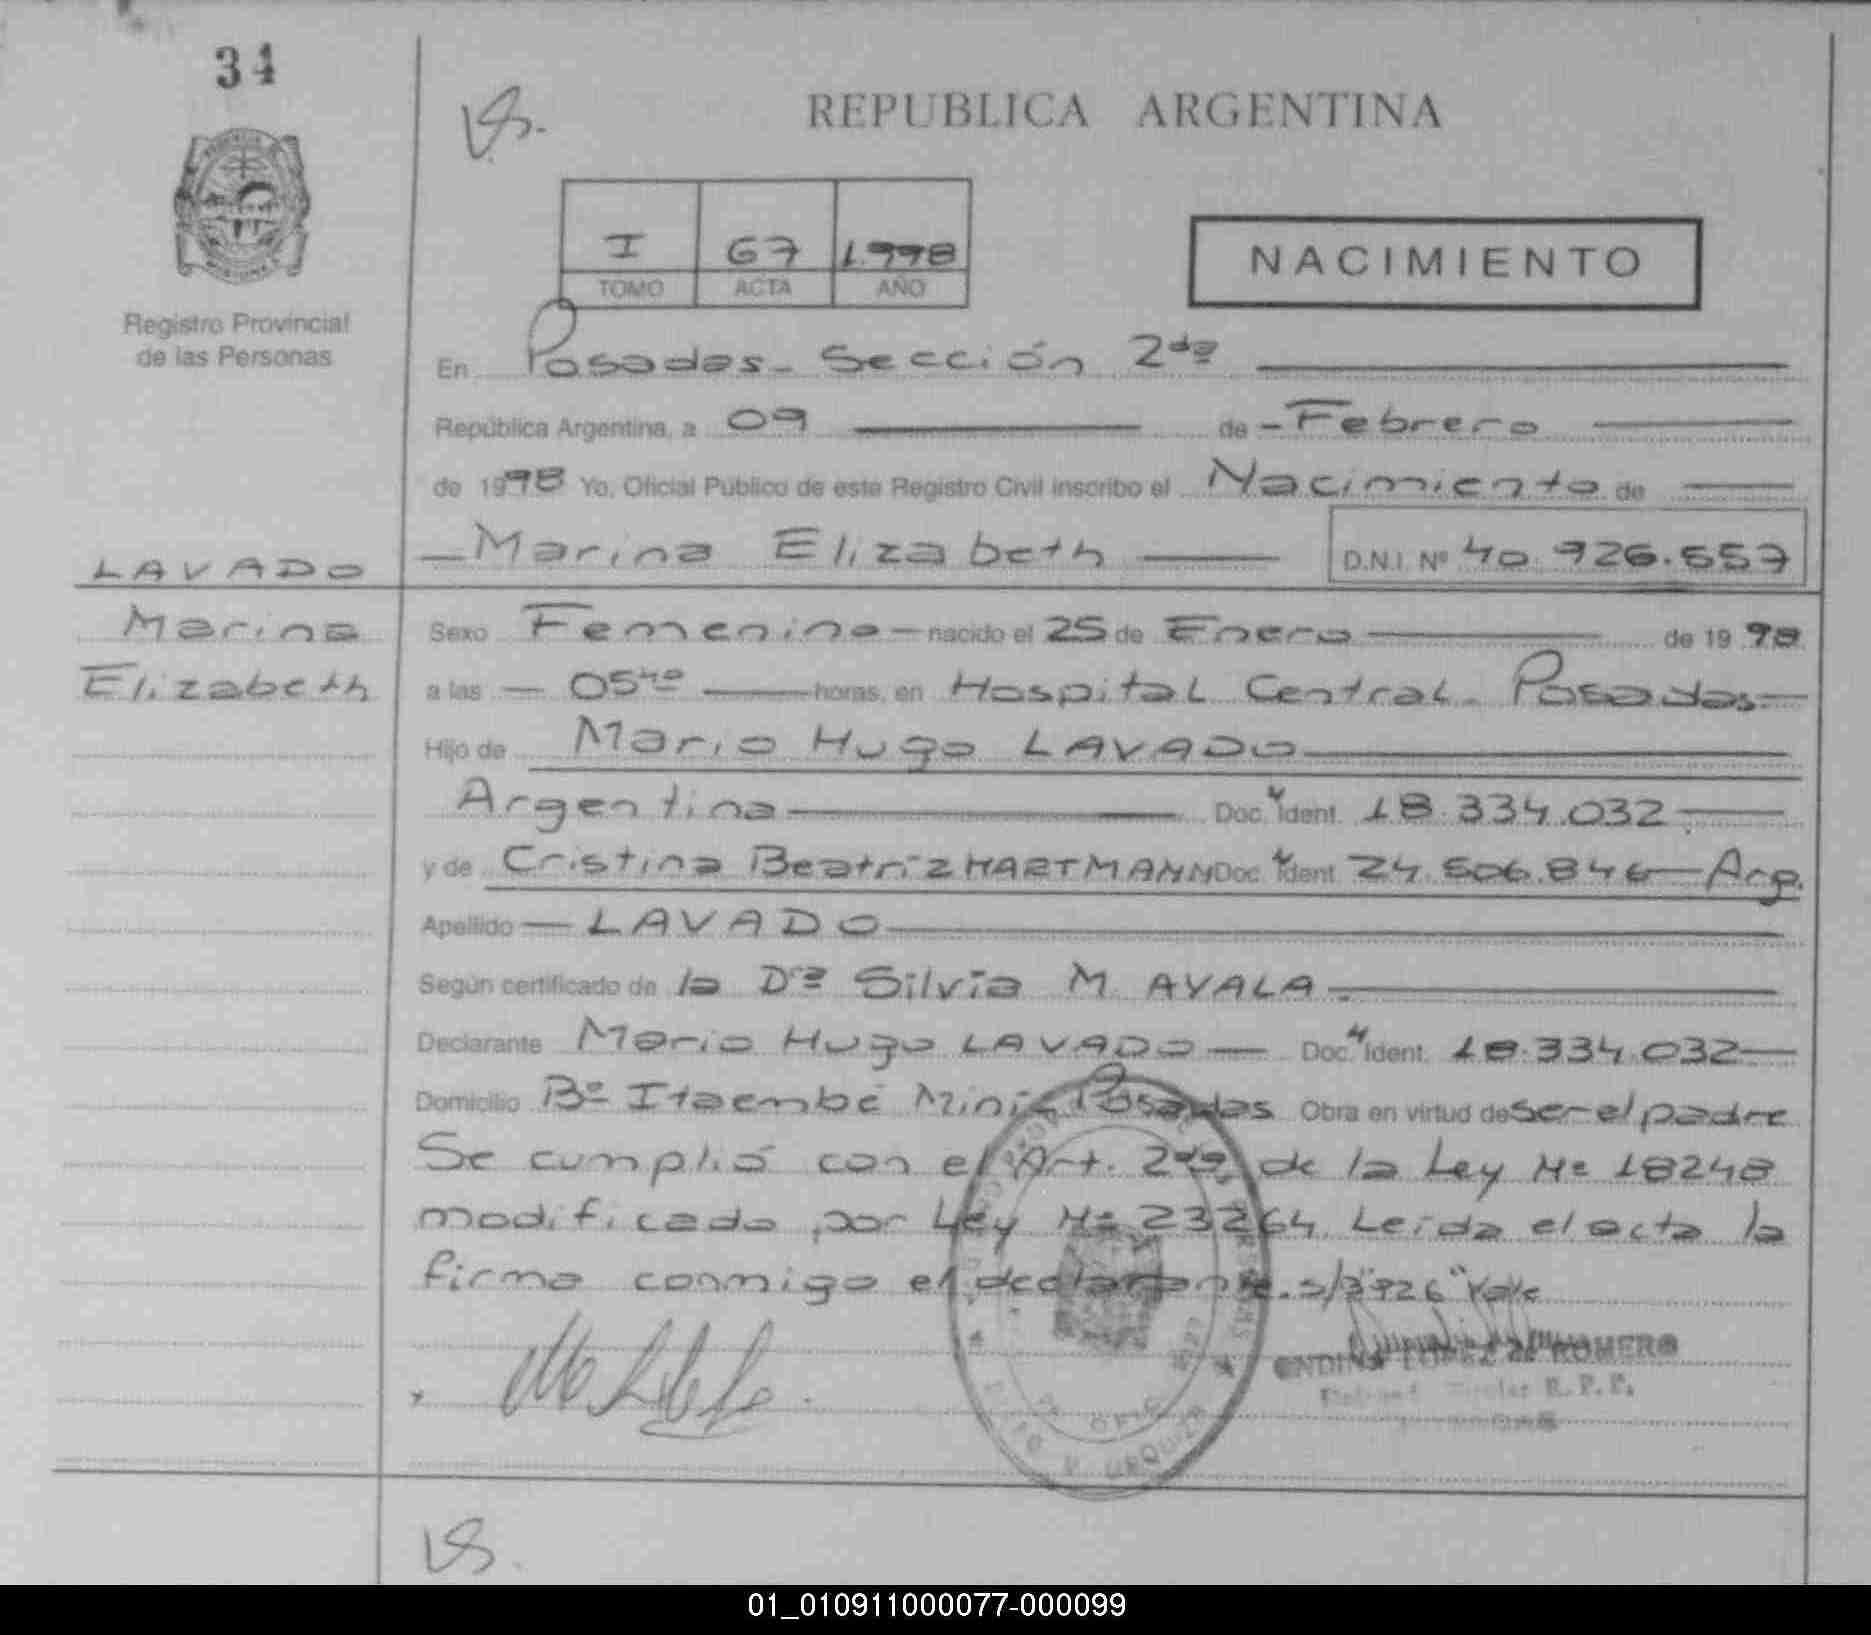 34
REPUBLICA ARGENTINA
I 67 1.998
TOMO ACTA AÑO
NACIMIENTO
Registro Provincial
de las Personas
En Posadas - Sección 2da
República Argentina, a 09 de - Febrero
de 1998 Yo, Oficial Público de este Registro Civil inscribo el Nacimiento de
Marina Elizabeth D.N.I. Nº 40.926.557
LAVADO
Marina
Elizabeth
Sexo Femenino - nacido el 25 de Enero de 1998
a las 05 40 horas, en Hospital Central - Posadas
Hijo de Mario Hugo LAVADO
Argentina Doc. Ident. 18.334.032
y de Cristina Beatriz HARTMANN Doc. Ident. 24.506.846 Arg.
Apellido LAVADO
Según certificado de la Dra Silvia M. AYALA.
Declarante Mario Hugo LAVADO Doc. Ident. 18.334.032
Domicilio Bº Itaembé Miní - Posadas Obra en virtud de ser el padre
Se cumplió con el Art. 2do de la Ley Nº 18248
modificado por Ley Nº 23264. Leída el acta la
firma conmigo el declarante. s/r "926" Vale
LOPEZ de ROMERO
R. P. P.
01_010911000077-000099